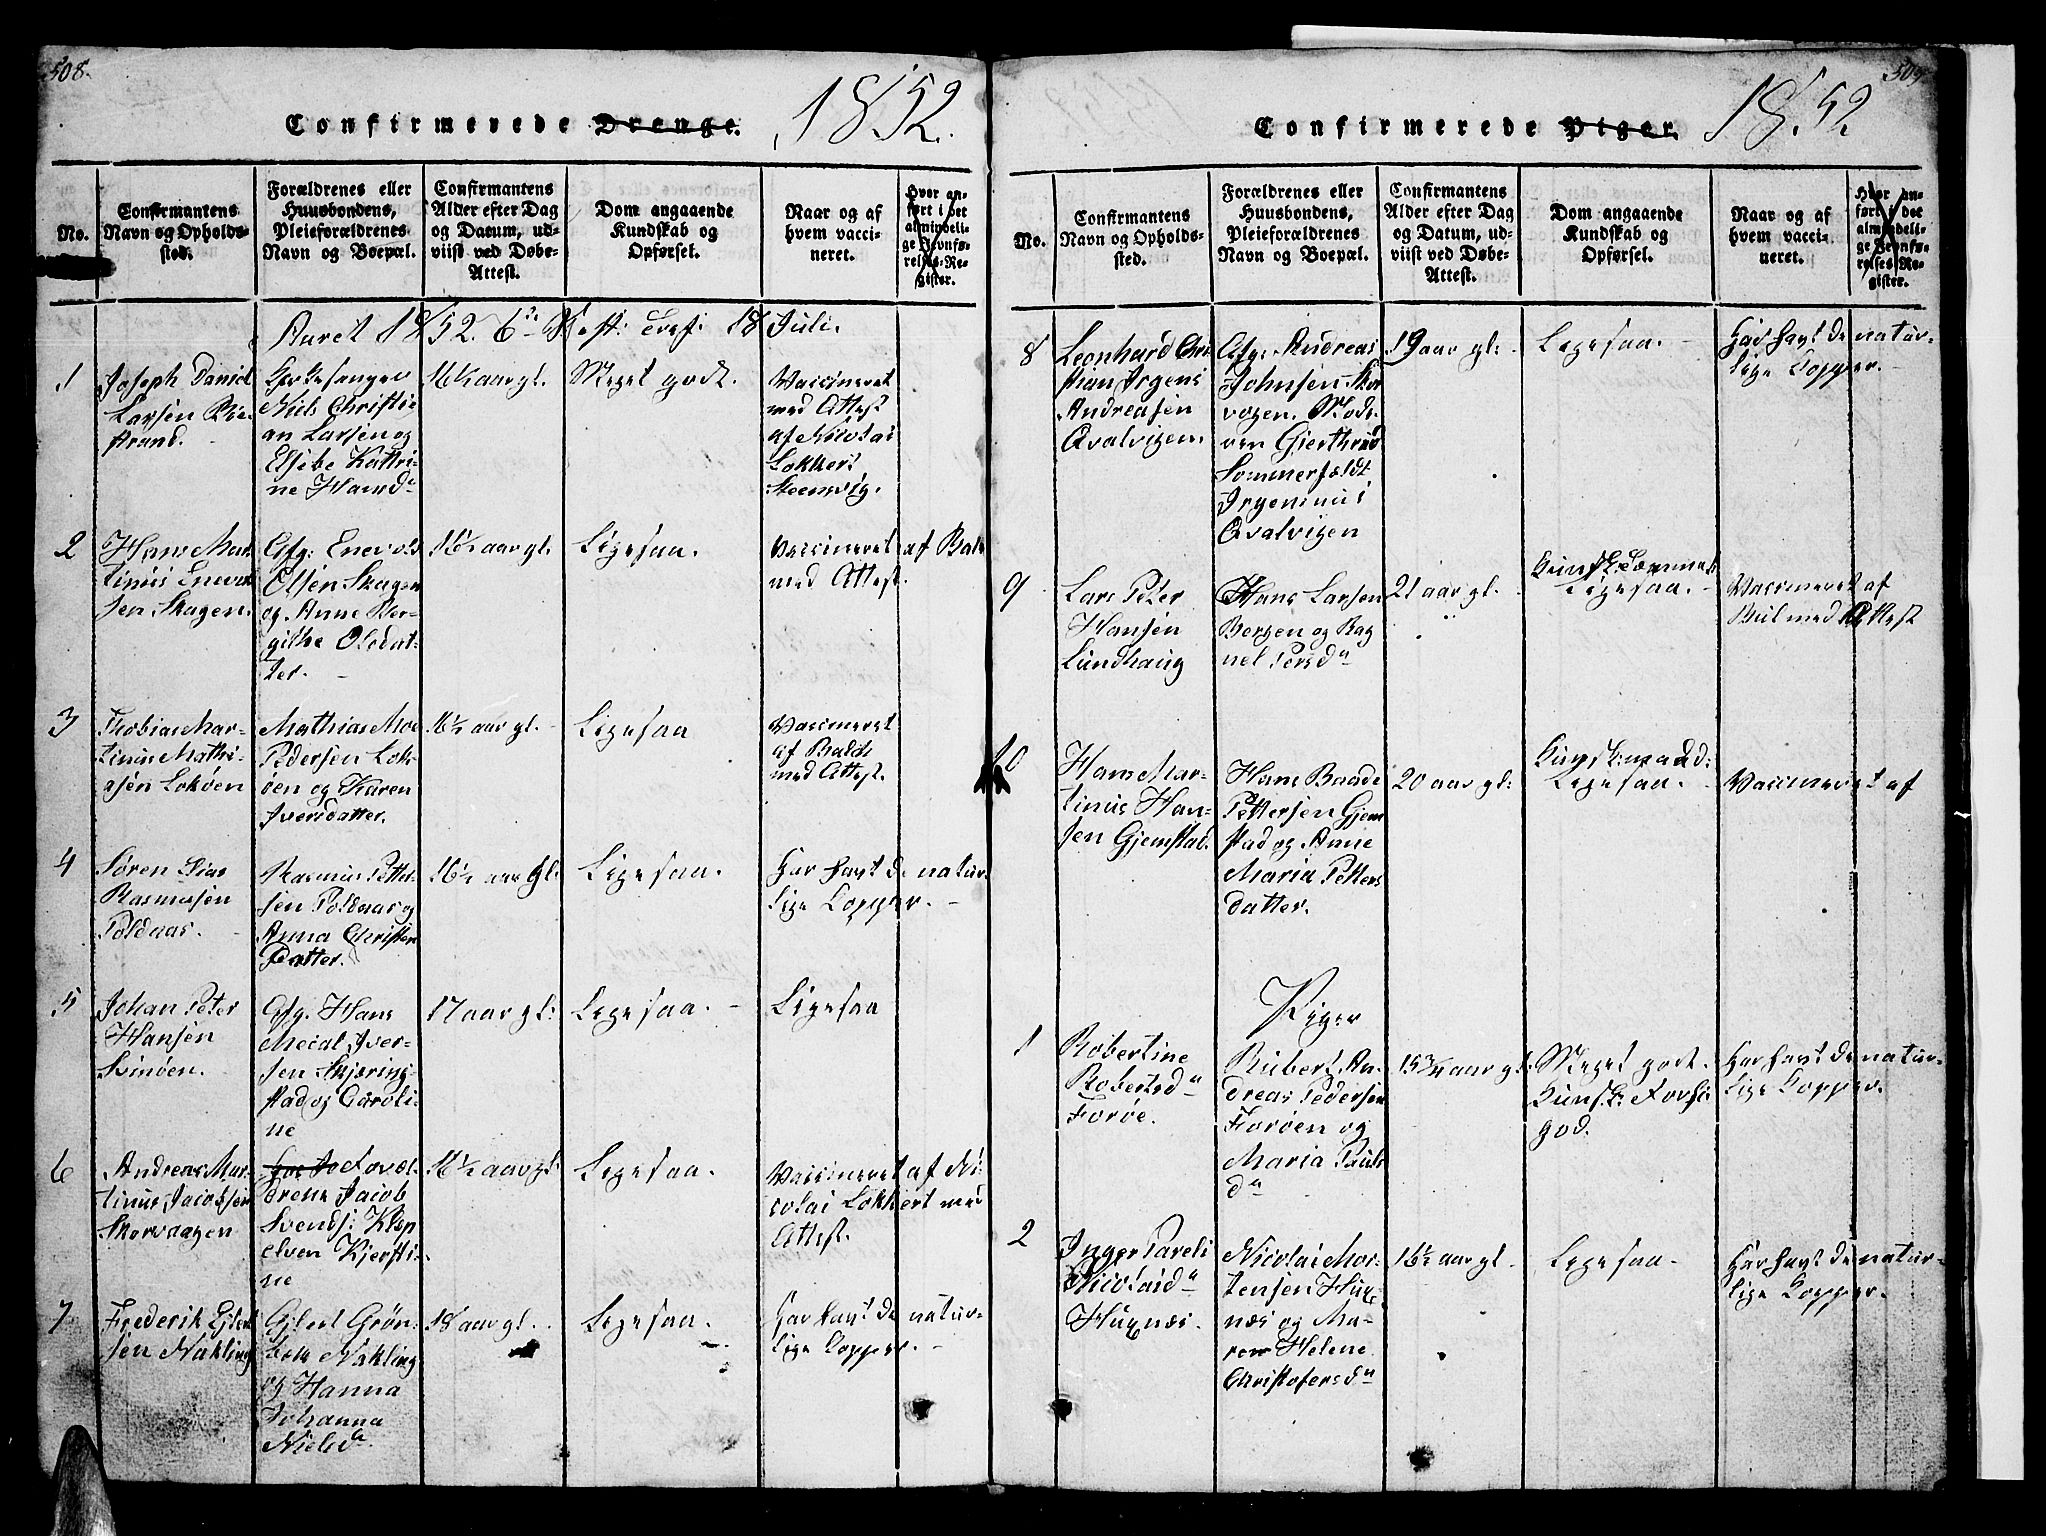 508.
Confirmerede Drenge. 1852.
No.
Confirmantens
Navn og Opholds-
sted.
Forældrenes eller
Huusbondens,
Pleieforældrenes
Navn og Boepæl.
Confirmantens
Alder efter Dag
og Datum, ud-
viist ved Døbe-
Attest.
Dom angaaende
Kundskab og
Opførsel.
Naar og af
hvem vacci-
neret.
Hvor an-
ført i det
almindeli-
ge Jevnfø-
relses-Re-
gister.
Aaret 1852. 18 Juli.
1
Joseph Daniel
Larsen
strand.
Kirkesanger
Niels Christi-
an Larsen og
Elsebe Kathri-
ne Hansd
16½ aar gl.
Meget godt.
Vaccineret
med Attest
af Nicolai
Lokkert
Steensvig.
2
Hans Mar
tinus Enevolt
sen Skagen.
Gfg: Enevold
Olsen Skagen
og Anne Ber-
githe Olsdat-
ter.
16½ aar gl.
Ligesaa.
Vaccineret af
med Attest.
3
Tobias Mar-
tinus Mathi-
asen Lokøen
Mathias Moe
Pedersen Lok
øen og Karen
Iversdatter.
16½ aar gl.
Ligesaa
Vaccineret
af
med Attest.
4
Søren
Rasmusen
Poldnas.
Rasmus Petter-
sen Poldnas og
Anna Christen
Datter.
16½ aar gl.
Ligesaa.
Har havt de natur-
lige Kopper.
5
Johan Peter
Hansen
Svinøen.
Gfg. Hans
Meial Iver-
sen Skjering-
stad og Caroli-
ne
17 aar gl:
Ligesaa.
Ligesaa
6
Andreas Mar-
tinus Jacobsen
Skorvaagen
Foræl-
drene Jacob
Svends: Klep
elven Kjersti-
ne
16½ aar gl.
Ligesaa.
Vaccineret af Ni-
colai Lokkert med
Attest.
7
Frederik Gjert
sen Nakling
Gjbert Grøn-
bek Nakling
og Hanna
Johanna
Nielsd.
18 aar gl.
Ligesaa.
Har havt de natur-
lige Kopper.
509
Confirmerede Piger. 1852
No.
Confirmantens
Navn og Opholds-
sted.
Forældrenes eller
Huusbondens,
Pleieforældrenes
Navn og Boepæl.
Confirmantens
Alder efter Dag
og Datum, ud-
viist ved Døbe-
Attest.
Dom angaaende
Kundskab og
Opførsel.
Naar og af
hvem vacci-
neret.
Hvor an-
ført i det
almindeli-
ge Jevnfø-
relses Re-
gister.
8
Leonhard Chri
stian Irgens
Andreasen
Qvalvigen.
Gfg: Andreas
Johnsen Skor
vogen. Mode-
ren Gierthrud
Sommerfeldt
Irgens i
Qvalvigen
19 aar gl:
Ligesaa.
Har havt de natur-
lige Kopper.
9
Lars Peter
Hansen
Lundhaug
Hans Larsen
Bergen og Rag
nel Persd
21 aar gl.
Ligesaa.
Vaccineret af
med Attest
10
Hans Mar-
tinus Han-
sen Gjemstad.
Hans Baade
Pettersen Gjem
stad og Anne
Maria Petters
datter.
20 aar gl:
Ligesaa.
Vaccineret af
Piger
1
Robertine
Robertsd
Forøe.
Rubert An-
dreas Pedersen
Forøen og
Maria Pauls
d
15¾ aar gl.
Meget godt.
god.
Har havt de natur-
lige Kopper.
2
Inger Pareli
Nicolaid
Hugnæs.
Nicolai Mor-
tensen Hug-
næs og Ma-
ren Helene
Christofersd
16½ aar gl.
Ligesaa.
Har havt de natur-
lige Kopper.